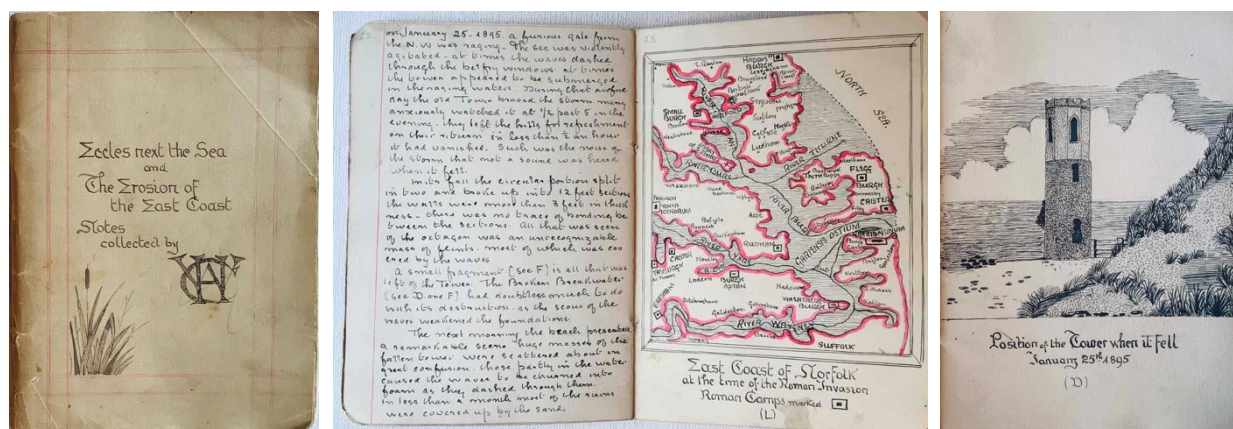 Eccles next the Sea
and
The Erosion of
the East Coast
Notes
collected by
on January 25. 1895 a furious gale from
the N.W was raging. The sea was violently
agitated. at times the waves dashed
through the belfry windows. at times
the tower appeared to be submerged
in the raging waters. During that awful
day the old Tower braved the storm many
anxiously watched it at ½ past 5 in the
evening. they left the hills for refreshment
on their return in less than ½ an hour
it had vanished. Such was the noise of
the storm that not a sound was heard
when it fell.
In its fall the circular portion split
in two and broke up into 12 feet sections
the walls were more than 3 feet in thick
ness. there was no trace of bonding be
tween the sections. All that was seen
of the octagon was an unrecognizable
mass of flints. most of which was cov
ered by the waves.
A small fragment (see F) is all that was
left of the Tower. The Broken Breakwater
(see D. and F) had doubtless much to do
with its destruction. as the scour of the
waves weakened the foundations.
The next morning the beach presented
a remarkable scene. huge masses of the
fallen tower were scattered about in
great confusion. those partly in the water
caused the waves to be churned into
foam as they dashed through them.
in less than a month most of the ruins
were covered up by the sand.
25
NORTH SEA.
HAPPIS BURGH
STALHAM
Sutton
Catfield
Ludham
SMALL BURGH
RIVER ANT
RIVER THURNE
RIVER BURE
FLEGG BURGH
Ormesby
CAISTER
GARIENIS OSTIUM
Acle
REEDHAM
RIVER YARE
CASTER
BURGH
Loddon
Haddiscoe
Geldeston
Gillingham
Beccles
RIVER WAVENEY
SUFFOLK
East Coast of Norfolk
at the time of the Roman Invasion
Roman Camps marked
(L)
Position of the Tower when it fell
January 25th 1895
(D)